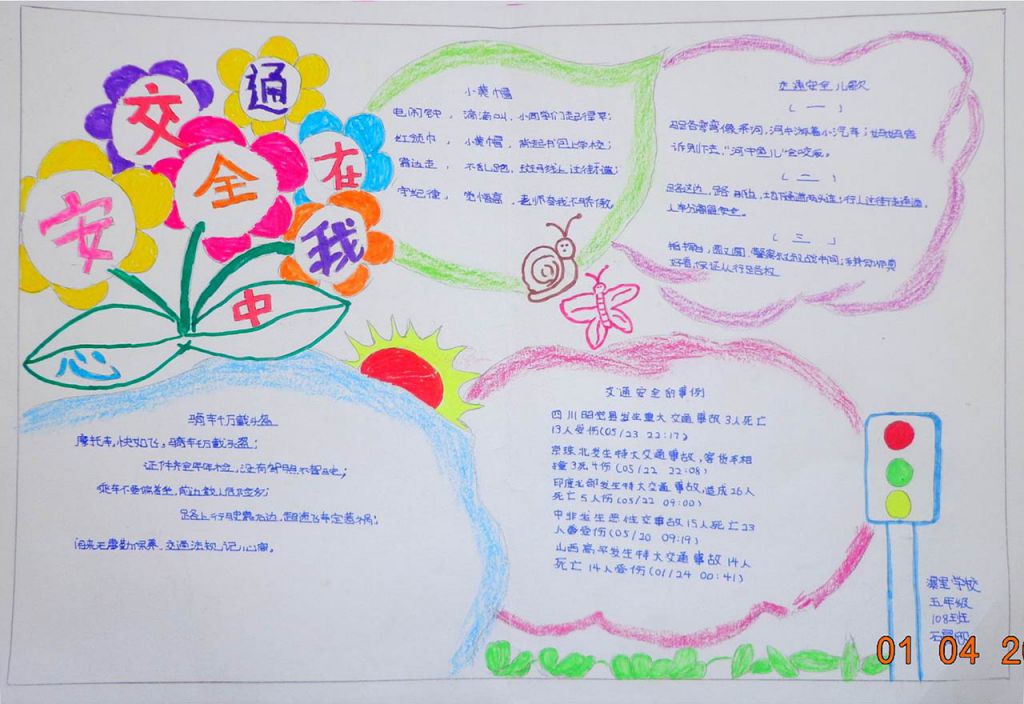 交通
安全在我
心中
小黄帽
电闹钟,滴滴叫,小同学们起得早;
红领巾,小黄帽,背起书包上学校;
靠边走,不乱跑,斑马线上过街道;
守纪律,觉悟高,老师夸我不骄傲。
交通安全儿歌
(一)
马路弯弯像条河,河中游着小汽车;妈妈告
诉别下去,"河中鱼儿"会咬人。
(二)
马路这边,路那边,地下通道两头连;行人过街走通道,
人车分离最安全。
(三)
指挥台,圆又圆,警察叔叔站中间;
好看,保证人行
骑车千万戴头盔
摩托车,快如飞,骑车千万戴头盔;
证件齐全年年检,没有
乘车不要偏着坐,
路上行驶靠右边,超速飞车定惹祸;
闲来无事勤保养,交通法规记心窝。
交通安全的事例
四川昭觉县发生重大交通事故3人死亡
13人受伤(05/23 22:17)
京珠北发生特大交通事故,客货车相
撞3死4伤(05/22 22:08)
印度北部发生特大交通事故,造成26人
死亡5人伤(05/22 09:00)
中非发生恶性交事故15人死亡23
人重受伤(05/20 09:19)
山西高平发生特大交通事故14人
死亡14人受伤(01/24 00:41)
学校
五年级
108班
01 04 20